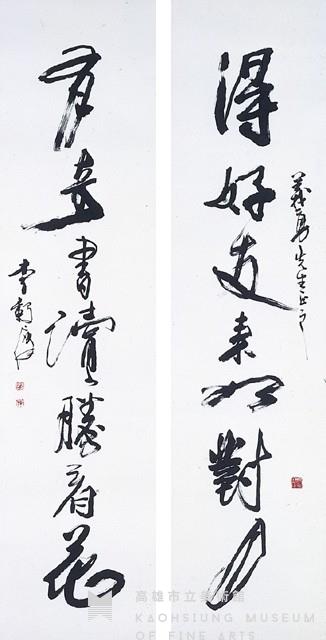 得好友來如對月
義勇先生正之
有奇書讀勝看花
李轂摩
高雄市立美術館
KAOHSIUNG MUSEUM
OF FINE ARTS